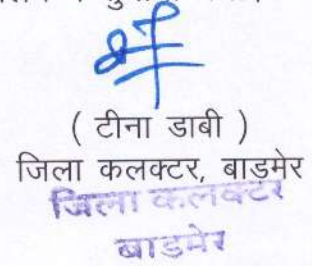 ( टीना डाबी )
जिला कलक्टर, बाडमेर
जिला कलक्टर
बाडमेर